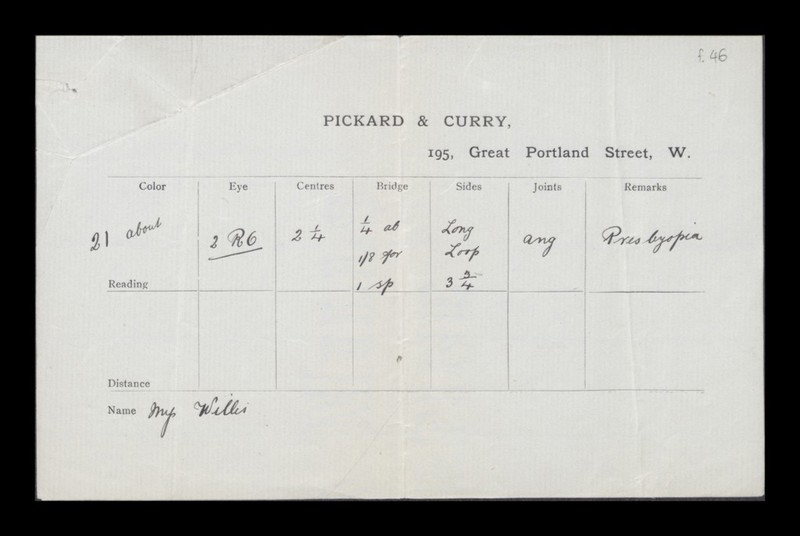 f. 46
PICKARD & CURRY,
195, Great Portland Street, W.
Color Eye Centres Bridge Sides Joints Remarks
21 about 2 R6 2 1/4 1/4 ab Long ang Presbyopia
1/8 for Loop
Reading 1 sp 3 3/4
Distance
Name Willis